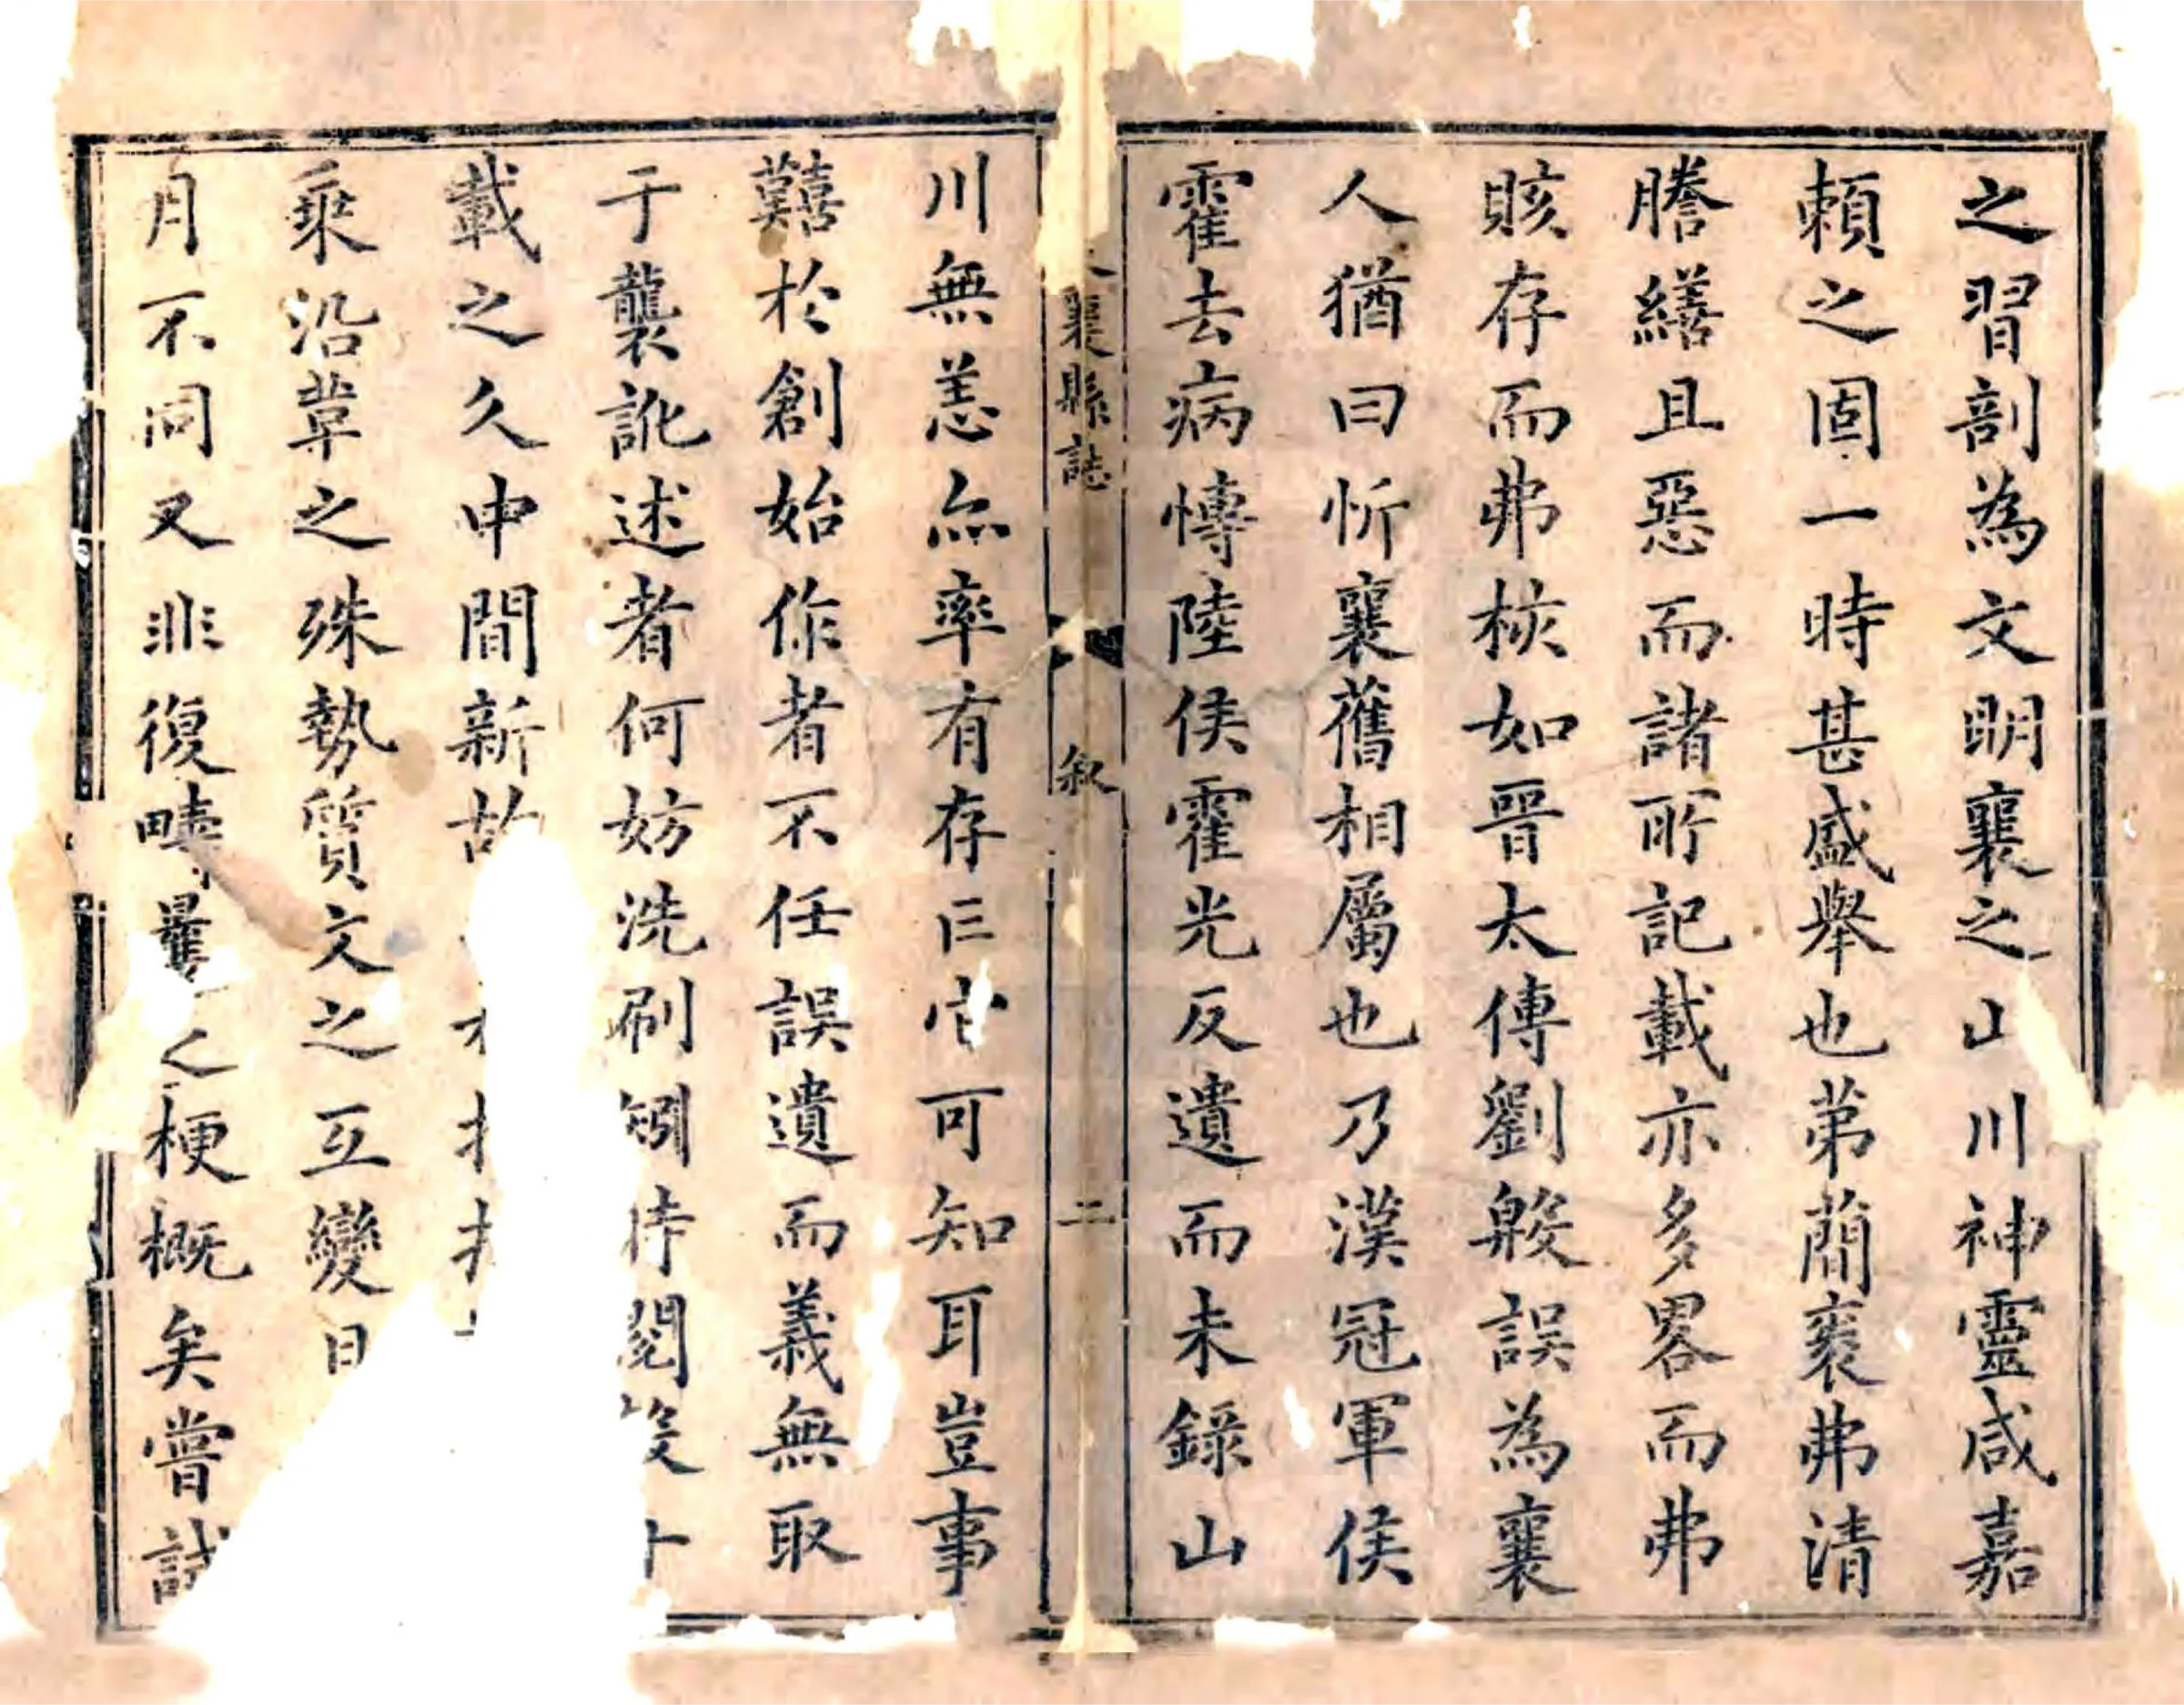 之習剖為文明襄之山川神靈咸嘉
頼之固一時甚盛舉也苐蕳褒弗清
謄繕且惡而諸所記載亦多畧而弗
賅存而弗核如晉太傅劉般誤為襄
人猶曰忻襄舊相屬也乃漢冠軍侯
霍去病慱陸侯霍光反遺而未錄山
襄縣誌
叙
二
川無恙亦率有存亡它可知耳豈事
囏於創始作者不任誤遺而義無取
于襲訛述者何妨洗刷矧待閱
載之久中間新故
乘沿革之殊勢質文之互變日
月不同又非復疇曩之梗概矣嘗試